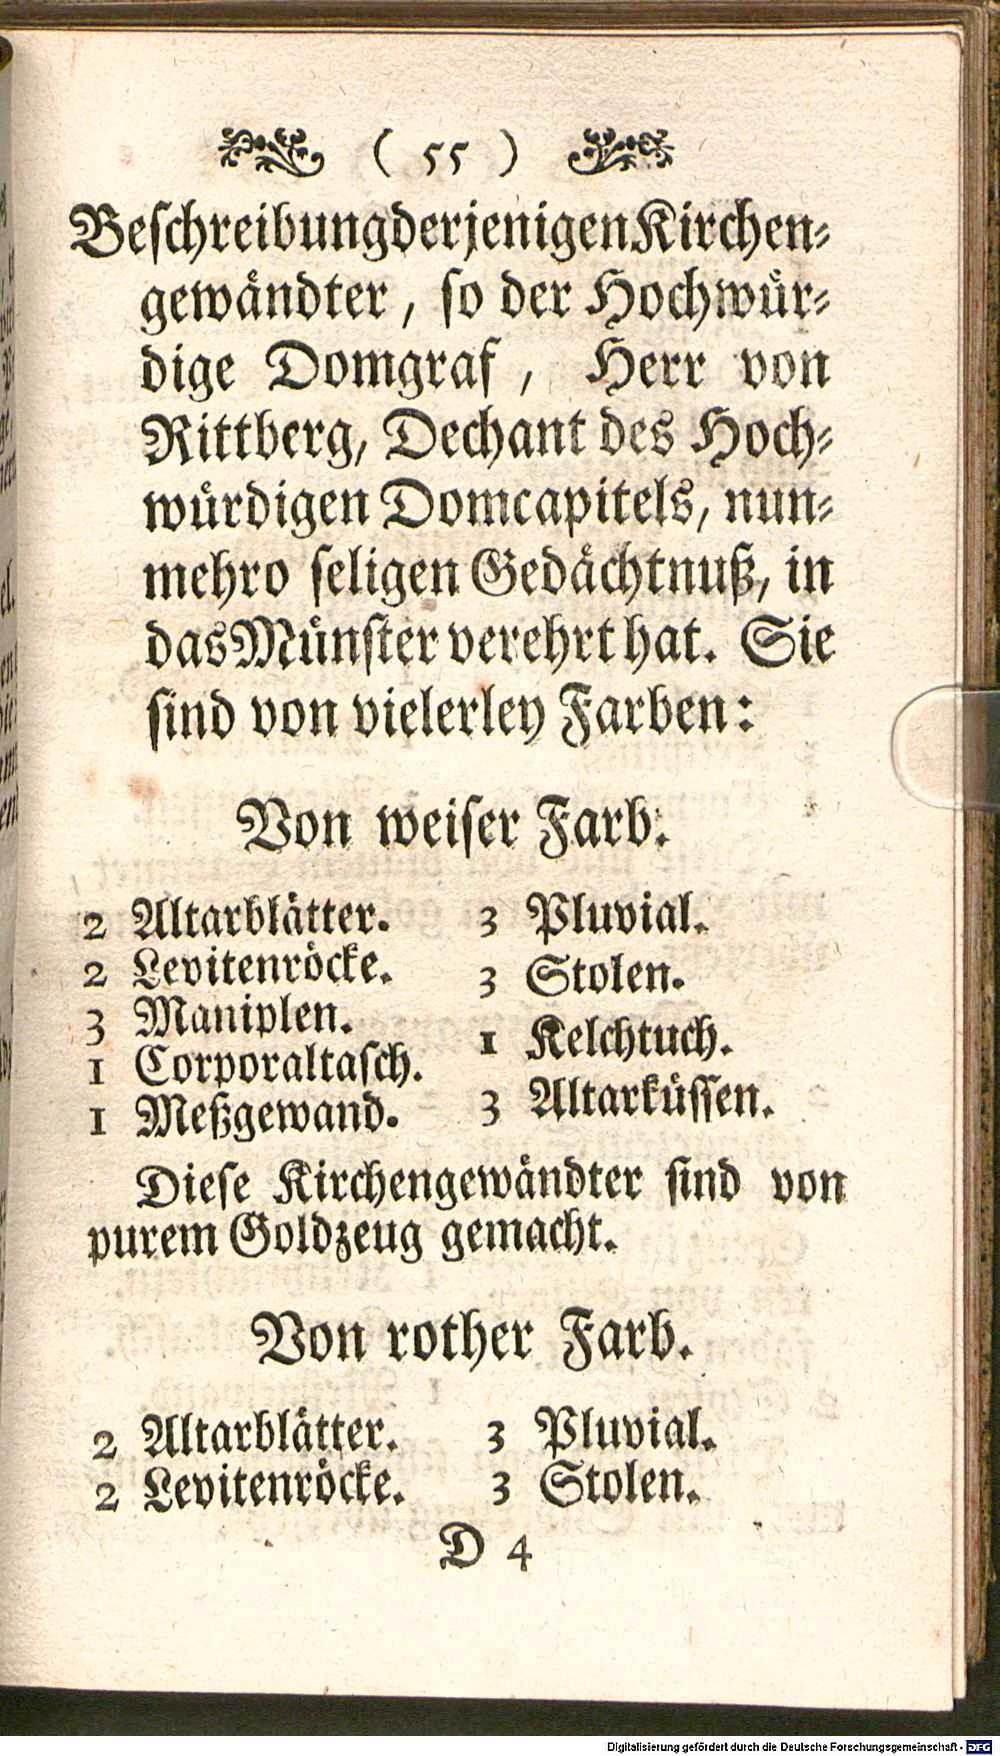 ( 55 )
Beschreibung derjenigen Kirchen-
gewändter, so der Hochwür-
dige Domgraf, Herr von
Rittberg, Dechant des Hoch-
würdigen Domcapitels, nun-
mehro seligen Gedächtnuß, in
das Münster verehrt hat. Sie
sind von vielerley Farben:
Von weiser Farb.
2 Altarblätter.
2 Levitenröcke.
3 Maniplen.
1 Corporaltasch.
1 Meßgewand.
3 Pluvial.
3 Stolen.
1 Kelchtuch.
3 Altarküssen.
Diese Kirchengewändter sind von
purem Goldzeug gemacht.
Von rother Farb.
2 Altarblätter.
2 Levitenröcke.
3 Pluvial.
3 Stolen.
D 4
Digitalisierung gefördert durch die Deutsche Forschungsgemeinschaft - DFG